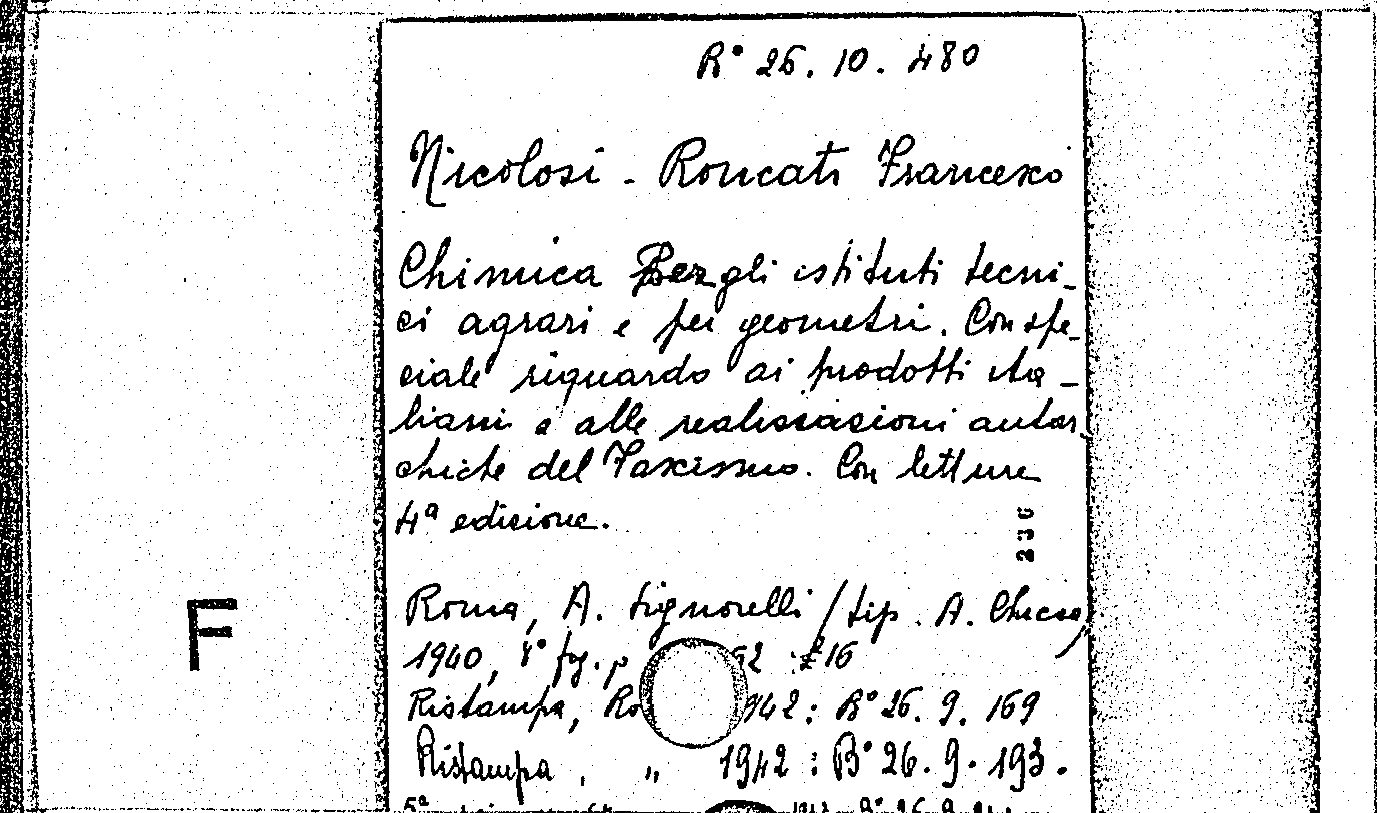 R° 26. 10. 480
Nicolosi - Roncati Francesco
Chimica Per gli istituti tecni-
ci agrari e per geometri. Con spe-
ciale riguardo ai prodotti ita-
liani e alle realizzazioni autar-
chiche del Fascismo. Con letture
4ª edizione.
236
Roma, A. Signorelli /tip. A. Chicca,
F
1940, 8° fig. p 62 : £16
Ristampa, Ro 942: B° 26. 9. 169
Ristampa, " 1942 : B° 26. 9. 193.